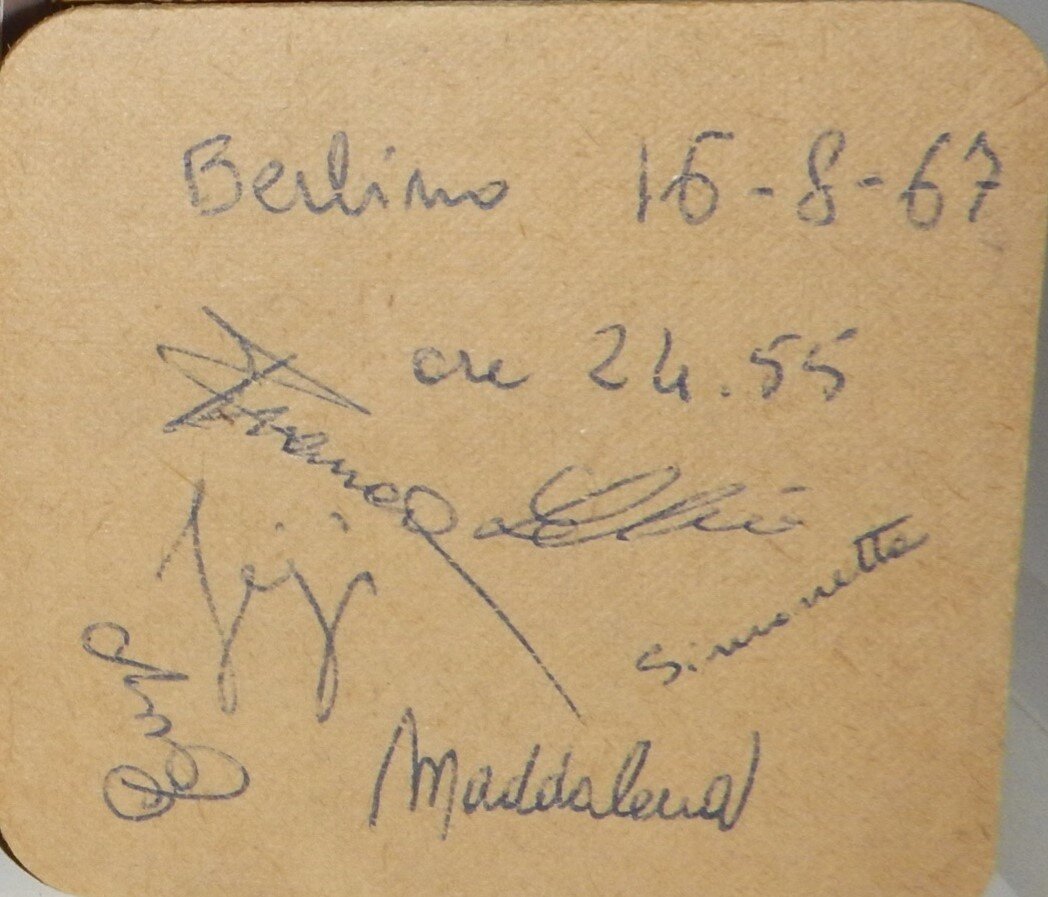 Berlino 16-8-67
ore 24.55
Franco
Gigi
Simonetta
Maddalena